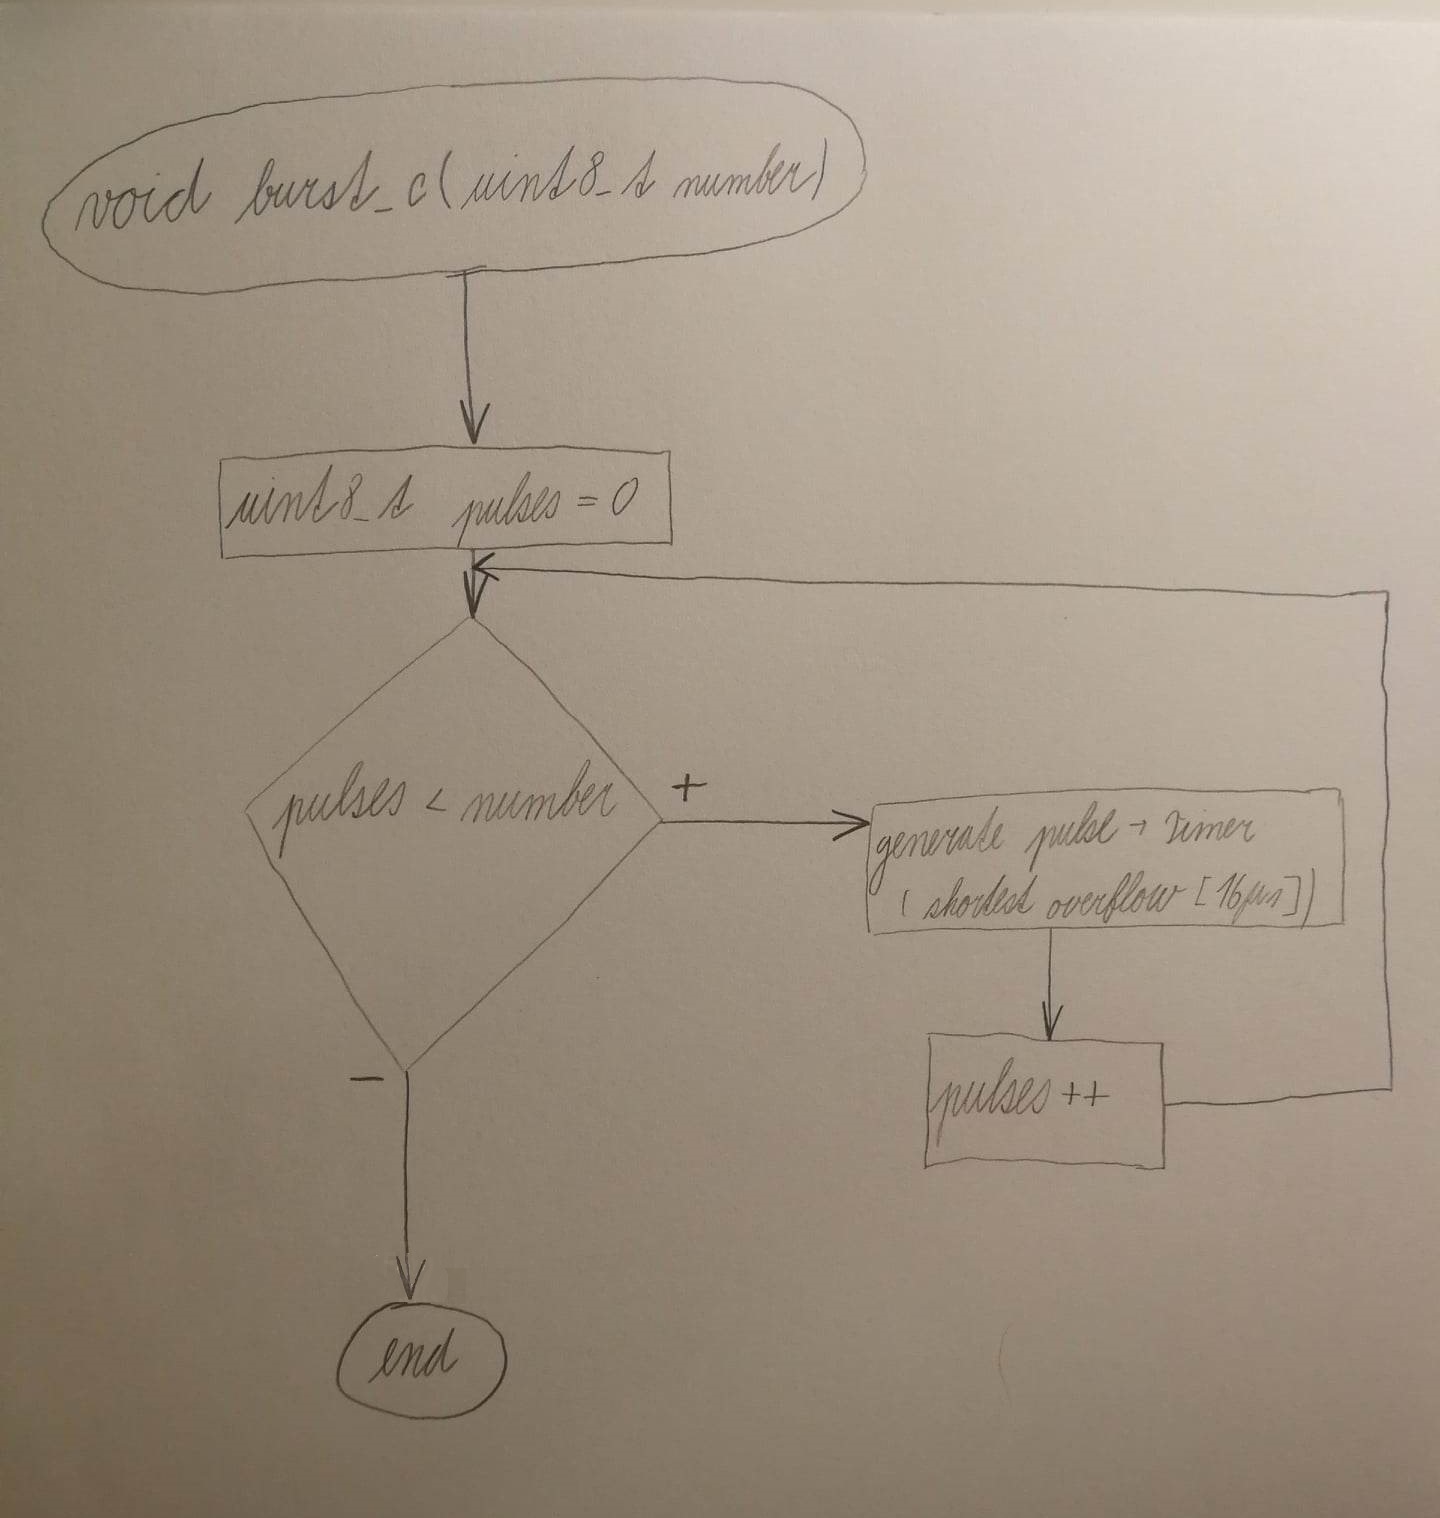 void burst_c(uint8_t number)
uint8_t pulses = 0
pulses < number
+
generate pulse → timer
(shortest overflow [16μs])
pulses ++
–
end